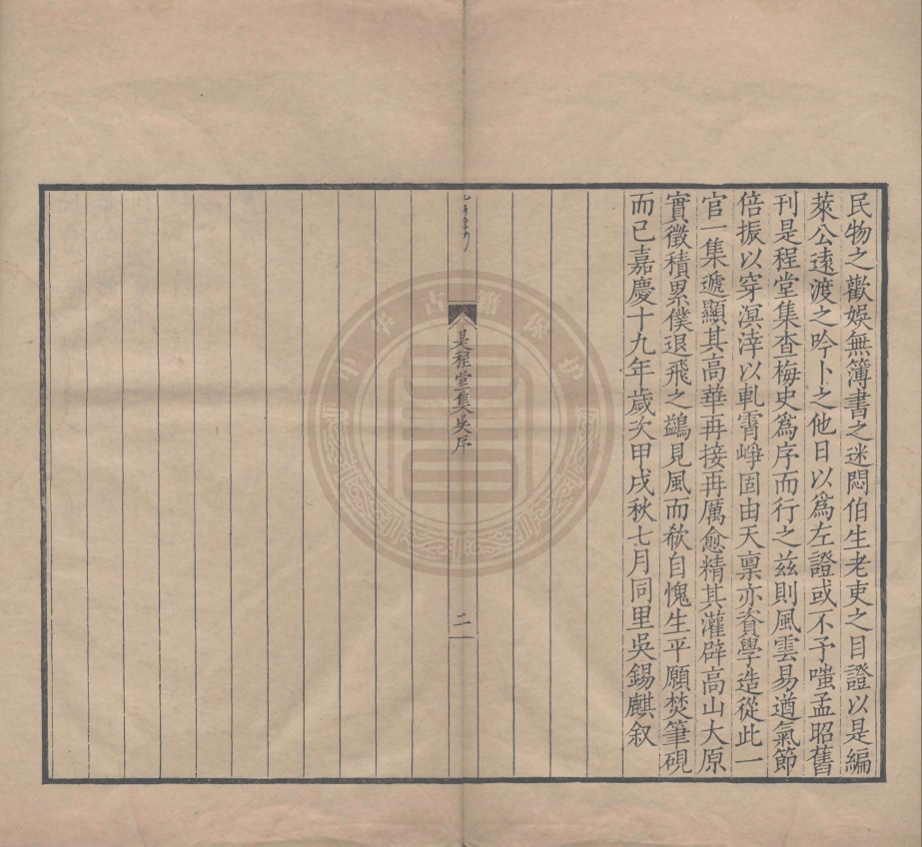 民物之歡娛無簿書之迷悶伯生老吏之目證以是編
萊公遠渡之吟卜之他日以為左證或不予嗤孟昭舊
刊是程堂集查梅史為序而行之茲則風雲易遒氣節
倍振以穿溟涬以軋霄崢固由天禀亦資學造從此一
官一集遞顯其高華再接再厲愈精其灌辟高山大原
實徵積累僕退飛之鷁見風而欷自愧生平願焚筆硯
而已嘉慶十九年歲次甲戌秋七月同里吳錫麒叙
是程堂集吳序
二